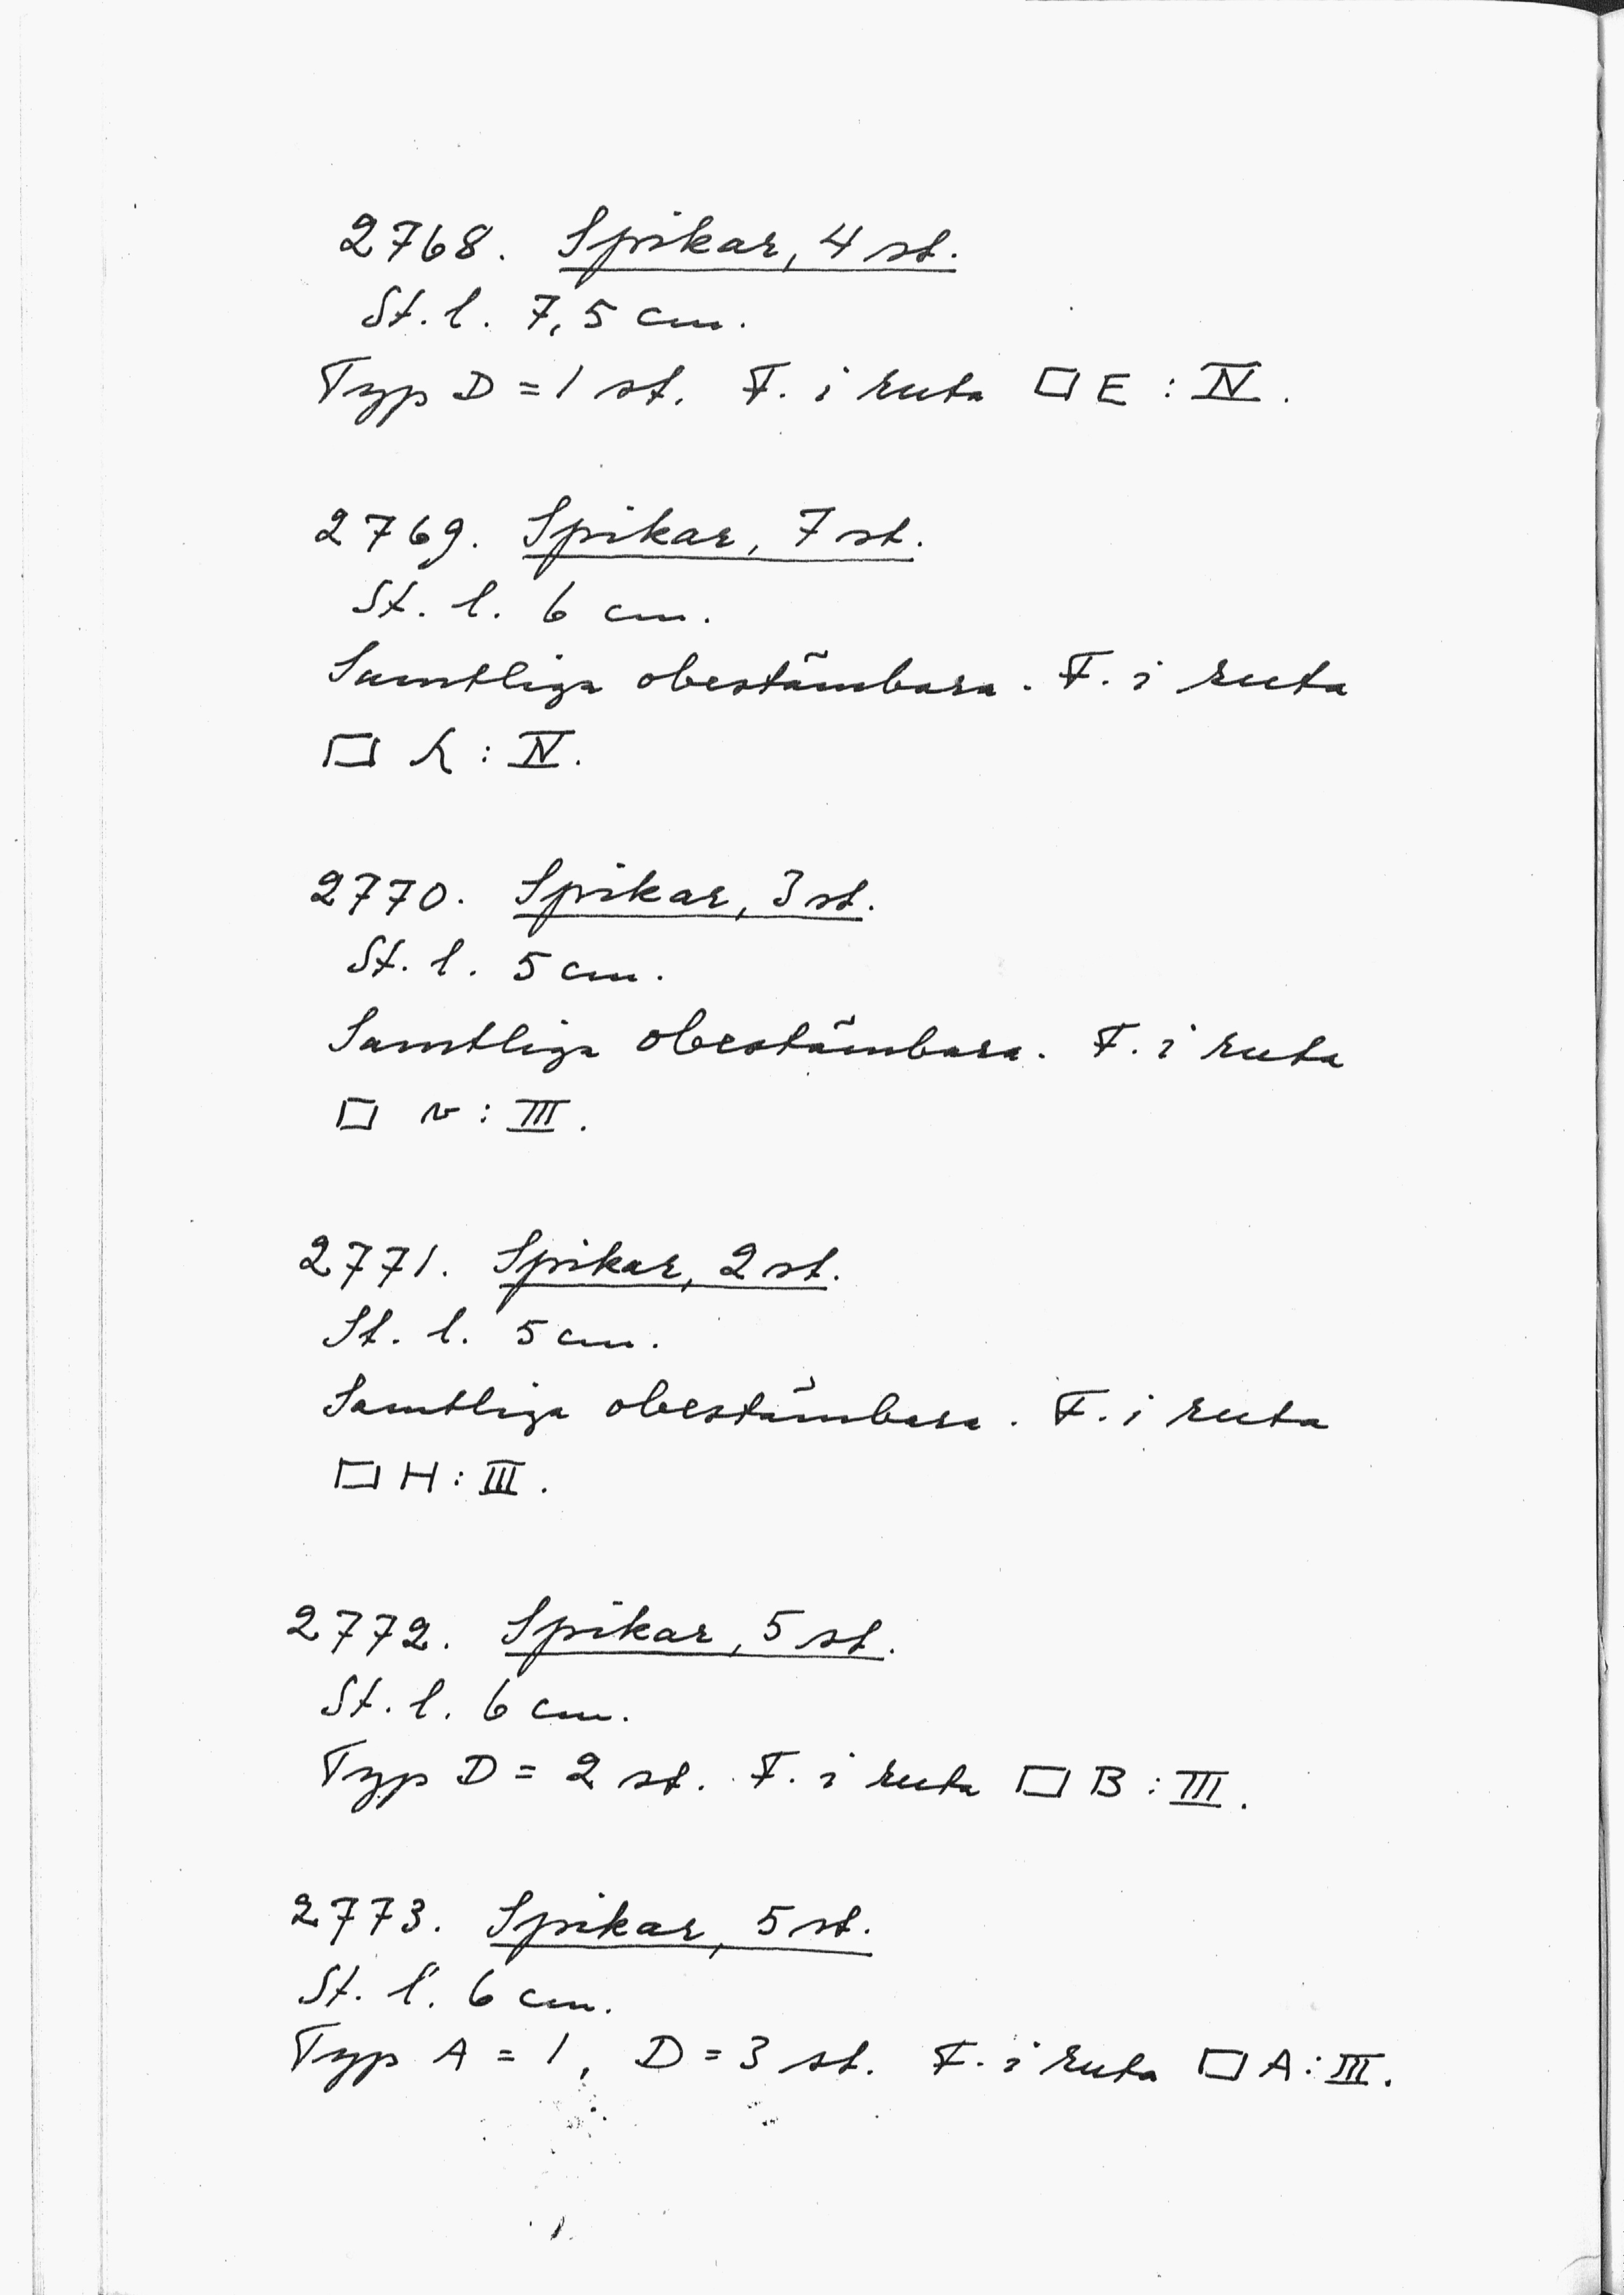 2768. Spikar, 4 st.
St. l. 7,5 cm.
Typ D = 1 st. F. i ruta □ E : IV.
2769. Spikar, 7 st.
St. l. 6 cm.
Samtliga obestämbara. F. i ruta
□ K : IV.
2770. Spikar, 3 st.
St. l. 5 cm.
Samtliga obestämbara. F. i ruta
□ v : III.
2771. Spikar, 2 st.
St. l. 5 cm.
Samtliga obestämbara. F. i ruta
□ H : III.
2772. Spikar, 5 st.
St. l. 6 cm.
Typ D = 2 st. F. i ruta □ B : III.
2773. Spikar, 5 st.
St. l. 6 cm.
Typ A = 1, D = 3 st. F. i ruta □ A : III.